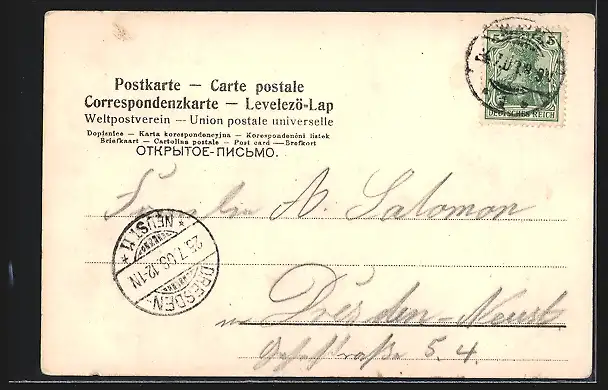 Postkarte — Carte postale
Correspondenzkarte — Levelező-Lap
Weltpostverein — Union postale universelle
Dopisnice — Karta korespondencyjna — Korespondenční lístek
Briefkaart — Cartolina postale — Post card — Brefkort
ОТКРЫТОЕ-ПИСЬМО.
DEUTSCHES REICH
Fräulein A. Salomon
DRESDEN-
NEUST. 11
in Dresden-Neust.
5. 4.